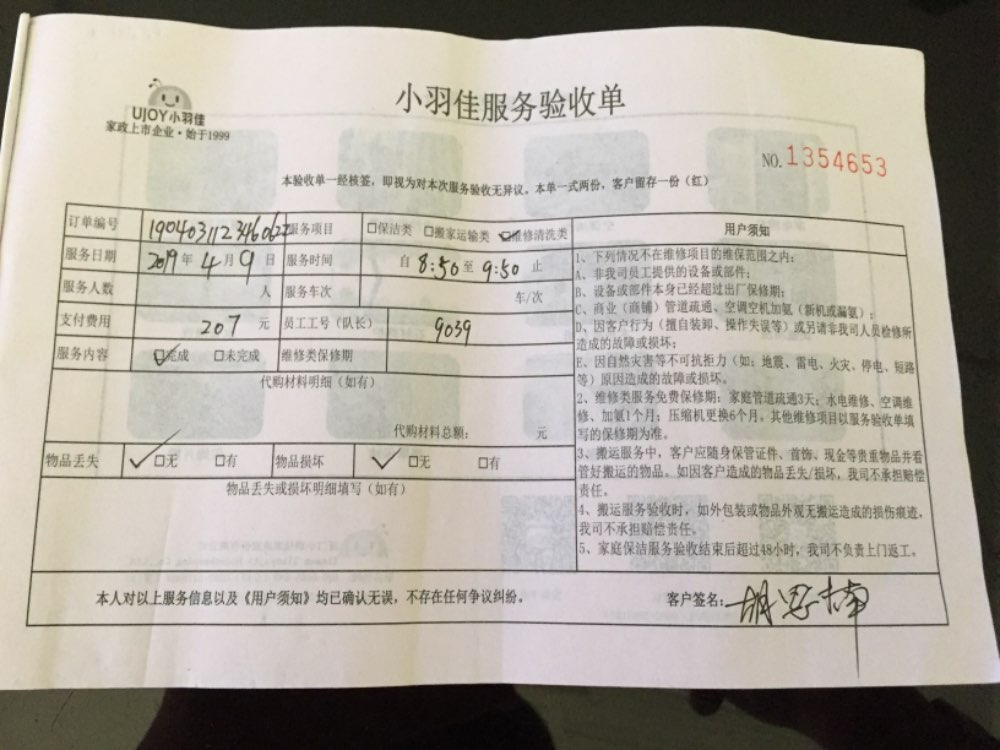 小羽佳服务验收单
UJOY小羽佳
家政上市企业·始于1999
NO.1354653
本验收单一经核签，即视为对本次服务验收无异议。本单一式两份，客户留存一份（红）
订单编号 服务项目 □保洁类 □搬家运输类 ☑维修清洗类
服务日期 2019年4月9日 服务时间 自 8:50至 9:50 止
服务人数 人 服务车次 车/次
支付费用 207 元 员工工号（队长） 9039
服务内容 ☑完成 □未完成 维修类保修期
代购材料明细（如有）
代购材料总额： 元
物品丢失 ✓□无 □有 物品损坏 ✓□无 □有
物品丢失或损坏明细填写（如有）
用户须知
1、下列情况不在维修项目的维保范围之内：
A、非我司员工提供的设备或部件；
B、设备或部件本身已经超过出厂保修期；
C、商业（商铺）管道疏通、空调空机加氨（新机或漏氨）；
D、因客户行为（擅自装卸、操作失误等）或另请非我司人员检修所
造成的故障或损坏；
E、因自然灾害等不可抗拒力（如：地震、雷电、火灾、停电、短路
等）原因造成的故障或损坏。
2、维修类服务免费保修期：家庭管道疏通3天；水电维修、空调维
修、加氨1个月；压缩机更换6个月。其他维修项目以服务验收单填
写的保修期为准。
3、搬运服务中，客户应随身保管证件、首饰、现金等贵重物品并看
管好搬运的物品。如因客户造成的物品丢失/损坏，我司不承担赔偿
责任。
4、搬运服务验收时，如外包装或物品外观无搬运造成的损伤痕迹，
我司不承担赔偿责任。
5、家庭保洁服务验收结束后超过48小时，我司不负责上门返工。
本人对以上服务信息以及《用户须知》均已确认无误，不存在任何争议纠纷。
客户签名：胡思楠